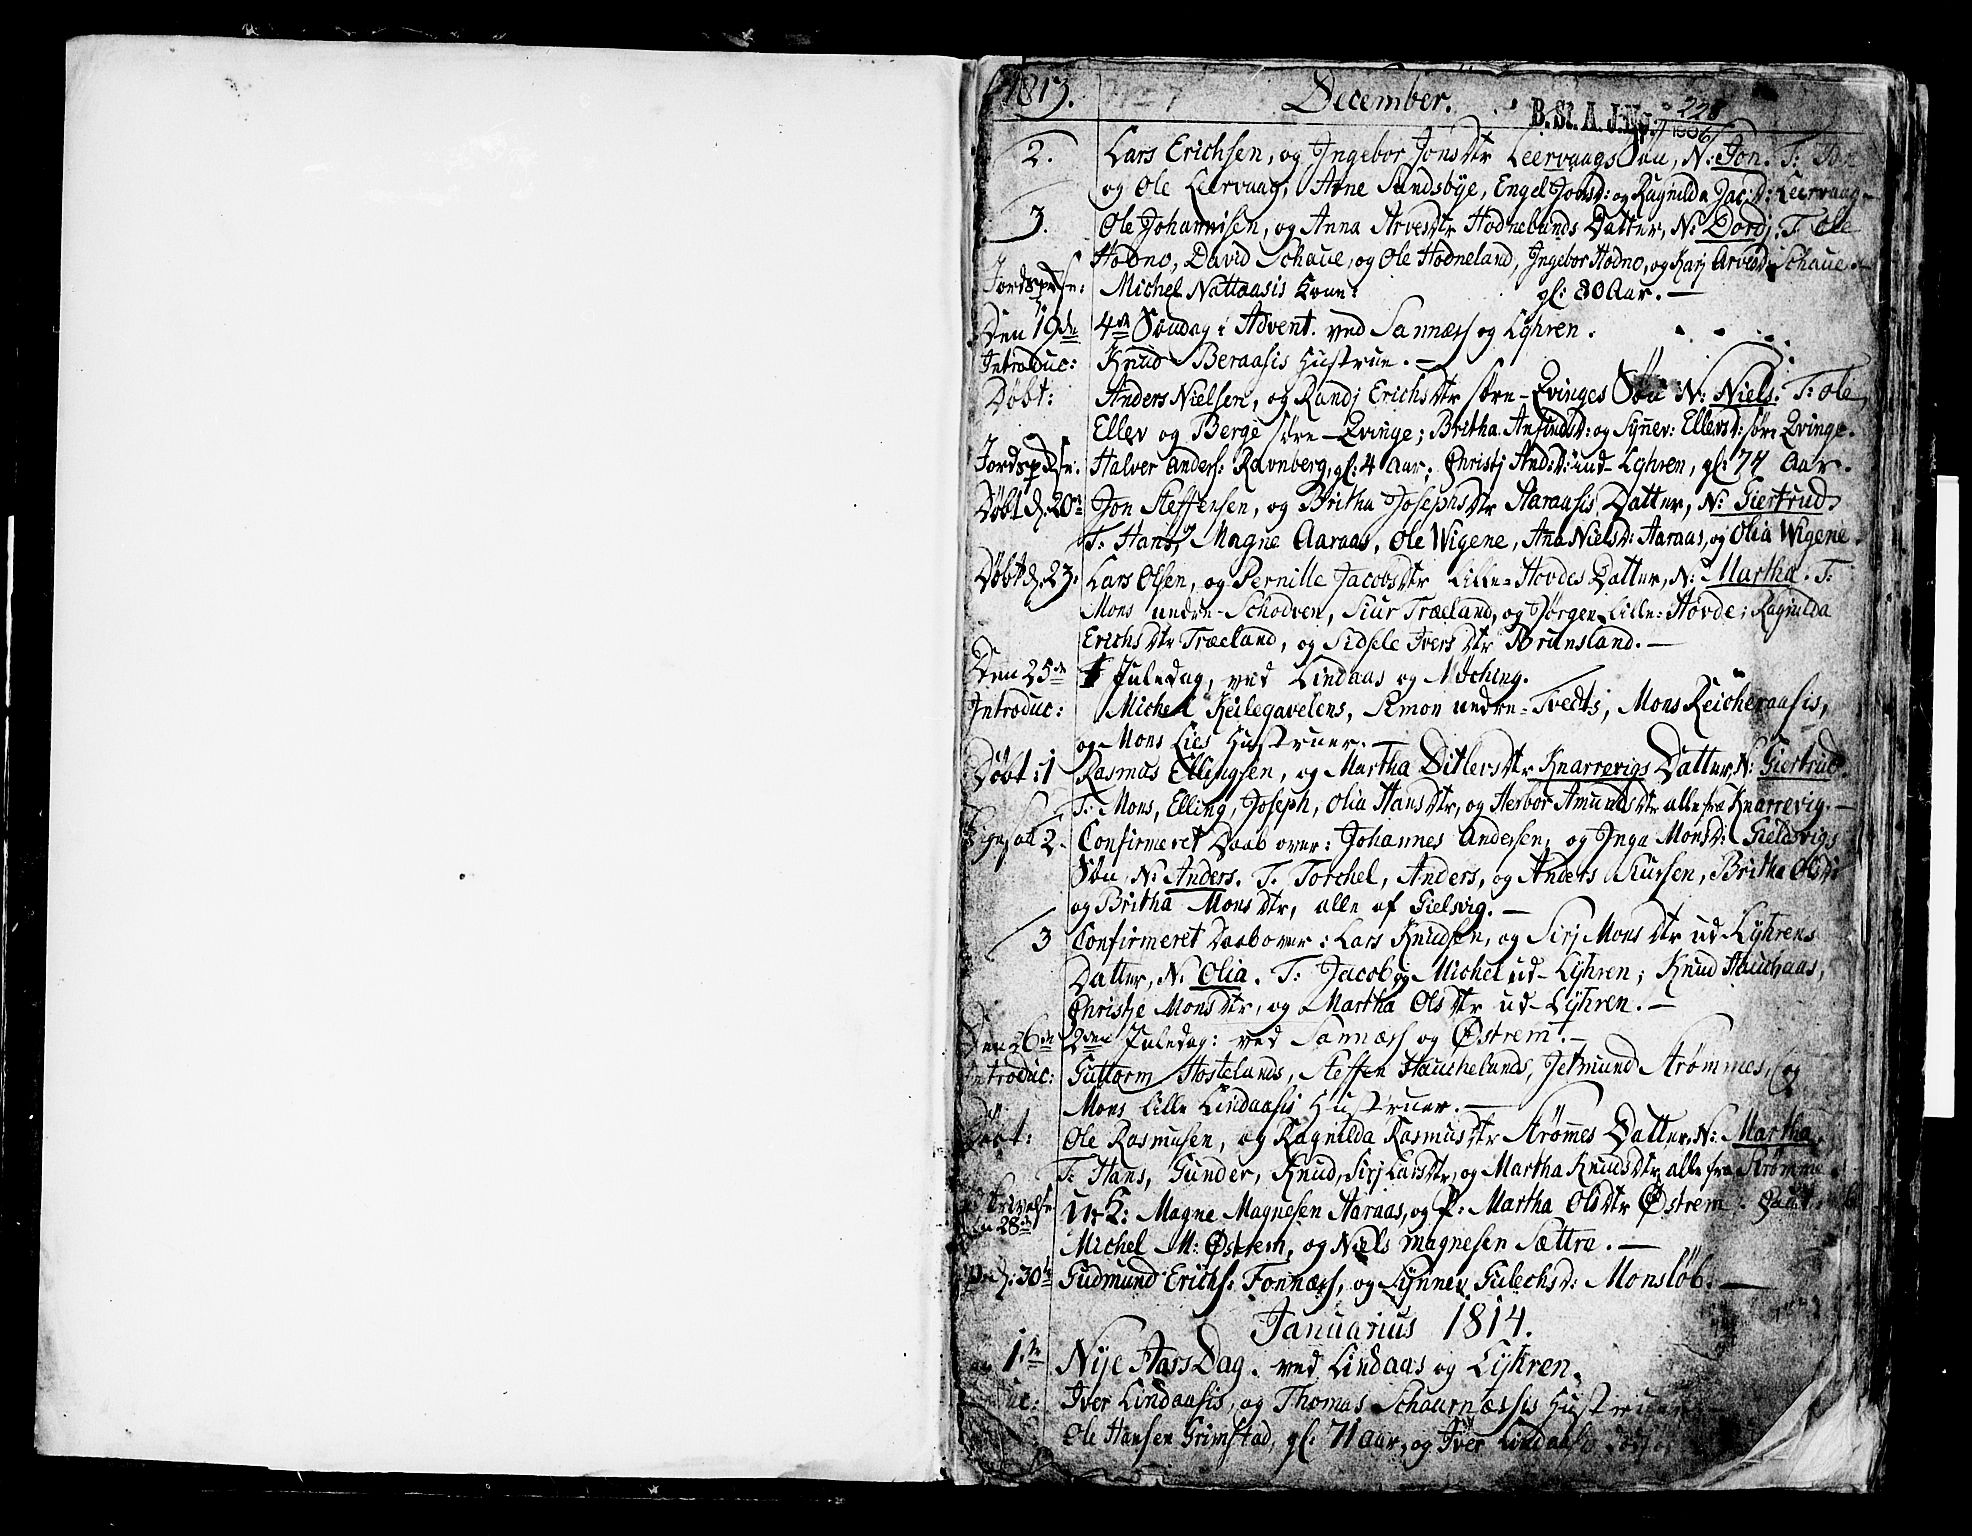 1813. December. B. St. A. J. No. 228/1906
2. Lars Erichsen, og Ingebor Jonsdtr Leervaags Søn, N: Jon. T:
og Ole Leervaag, Arne Sundsbye, Engel Jonsd: og Ragnilda Jac:D: Leervaag
3. Ole Johannisen, og Anna Arvesdtr Hodnelands Datter, N: Dordj. T. Ole
Hodno, David Schaue, og Ole Hodneland, Ingebor Hodno, og Karj Arvesd: Schaue.
Jordsp: Michel Nattaasis Kone: gl: 80 Aar. —
Den 19de 4de Søndag i Advent. ved Sannæss og Lyhren.
Introduc: Knud Beraasis Hustrue. —
Døbt: Anders Nielsen, og Randj Erichsdtr søre-Qvinges Søn N: Niels. T: Ole,
Ellev og Berge søre-Qvinge; Britha Ansindsd: og Synnev: Ellevsd: søre Qvinge.
Halver Anders: Ravnberg, gl: 4 Aar. Christj And:D: ud-Lyhren, gl: 77 Aar.
Døbt d. 20de Jon Steffensen, og Britha Josephsdtr Aaraasis Datter, N: Giertrud
T: Hans, Magne Aaraas, Ole Wigene, Ana Nielsd: Aaraas, og Olia Wigene.
Døbt d. 23. Lars Olsen, og Pernille Jacobsdtr Lille-Hovdes Datter, N: Martha. T:
Mons nedre-Schodven, Siur Træland, og Jørgen Lille-Hovde; Ragnilda
Erichsdtr Træeland, og Sidsele Iversdtr Brunsland. —
Den 25de 1 Juledag, ved Lindaas og Miching.
Introduc: Michel Keilegavelens, Simon nedre-Tvedts, Mons Reicheraasis,
og Mons Lies Hustruer. —
Døbt: 1 Rasmus Ellingsen, og Martha Ditlevsdtr Knarrevigs Datter, N: Giertrud.
T: Mons, Elling, Joseph, Olia Hansdtr, og Herbor Amundsdtr alle fra Knarrevig. —
2. Confirmeret Daab over: Johannes Andersen, og Inga Monsd: Gielsvigs
Søn, N: Anders. T. Torchel, Anders, og Anders Siursen, Britha Olsdtr
og Britha Monsdtr, alle af Gielsvig. —
3 Confirmeret Daab over: Lars Knudsen, og Sirj Monsdtr ud-Lyhrens
Datter, N. Olia. T: Jacob og Michel ud-Lyhren; Knud Hauchaas,
Christje Monsdtr, og Martha Olsdtr ud-Lyhren. —
Den 26de 2den Juledag: ved Sannæss og Østrem. —
Introduc: Guttorm Hostelands, Steffen Hauchelands, Jetmund Strømmes, og
Mons Lille Lindaasis Hustruer. —
Døbt: Ole Rasmusen, og Ragnilda Rasmusdtr Strømes Datter, N: Martha.
T: Hans, Gunder, Knud, Sirj Larsdtr, og Martha Knudsdtr alle fra Strømme.
Den 28de U: K: Magne Magnesen Aaraas, og P: Martha Olsdtr Østrem.
Michel M: Østrem, og Niels Magnesen Sættre. —
d. 30te Gudmund Erichs: Fonnæss, og Synnev Gulechsd: Monsløb. —
Januarius 1814.
1te Nije Aars Dag. ved Lindaas og Lyhren.
Iver Lindaasis, og Thomas Schaurnæssis Hustruer
Ole Hansen Grimstad, gl: 71 aar, og Iver Lindaas